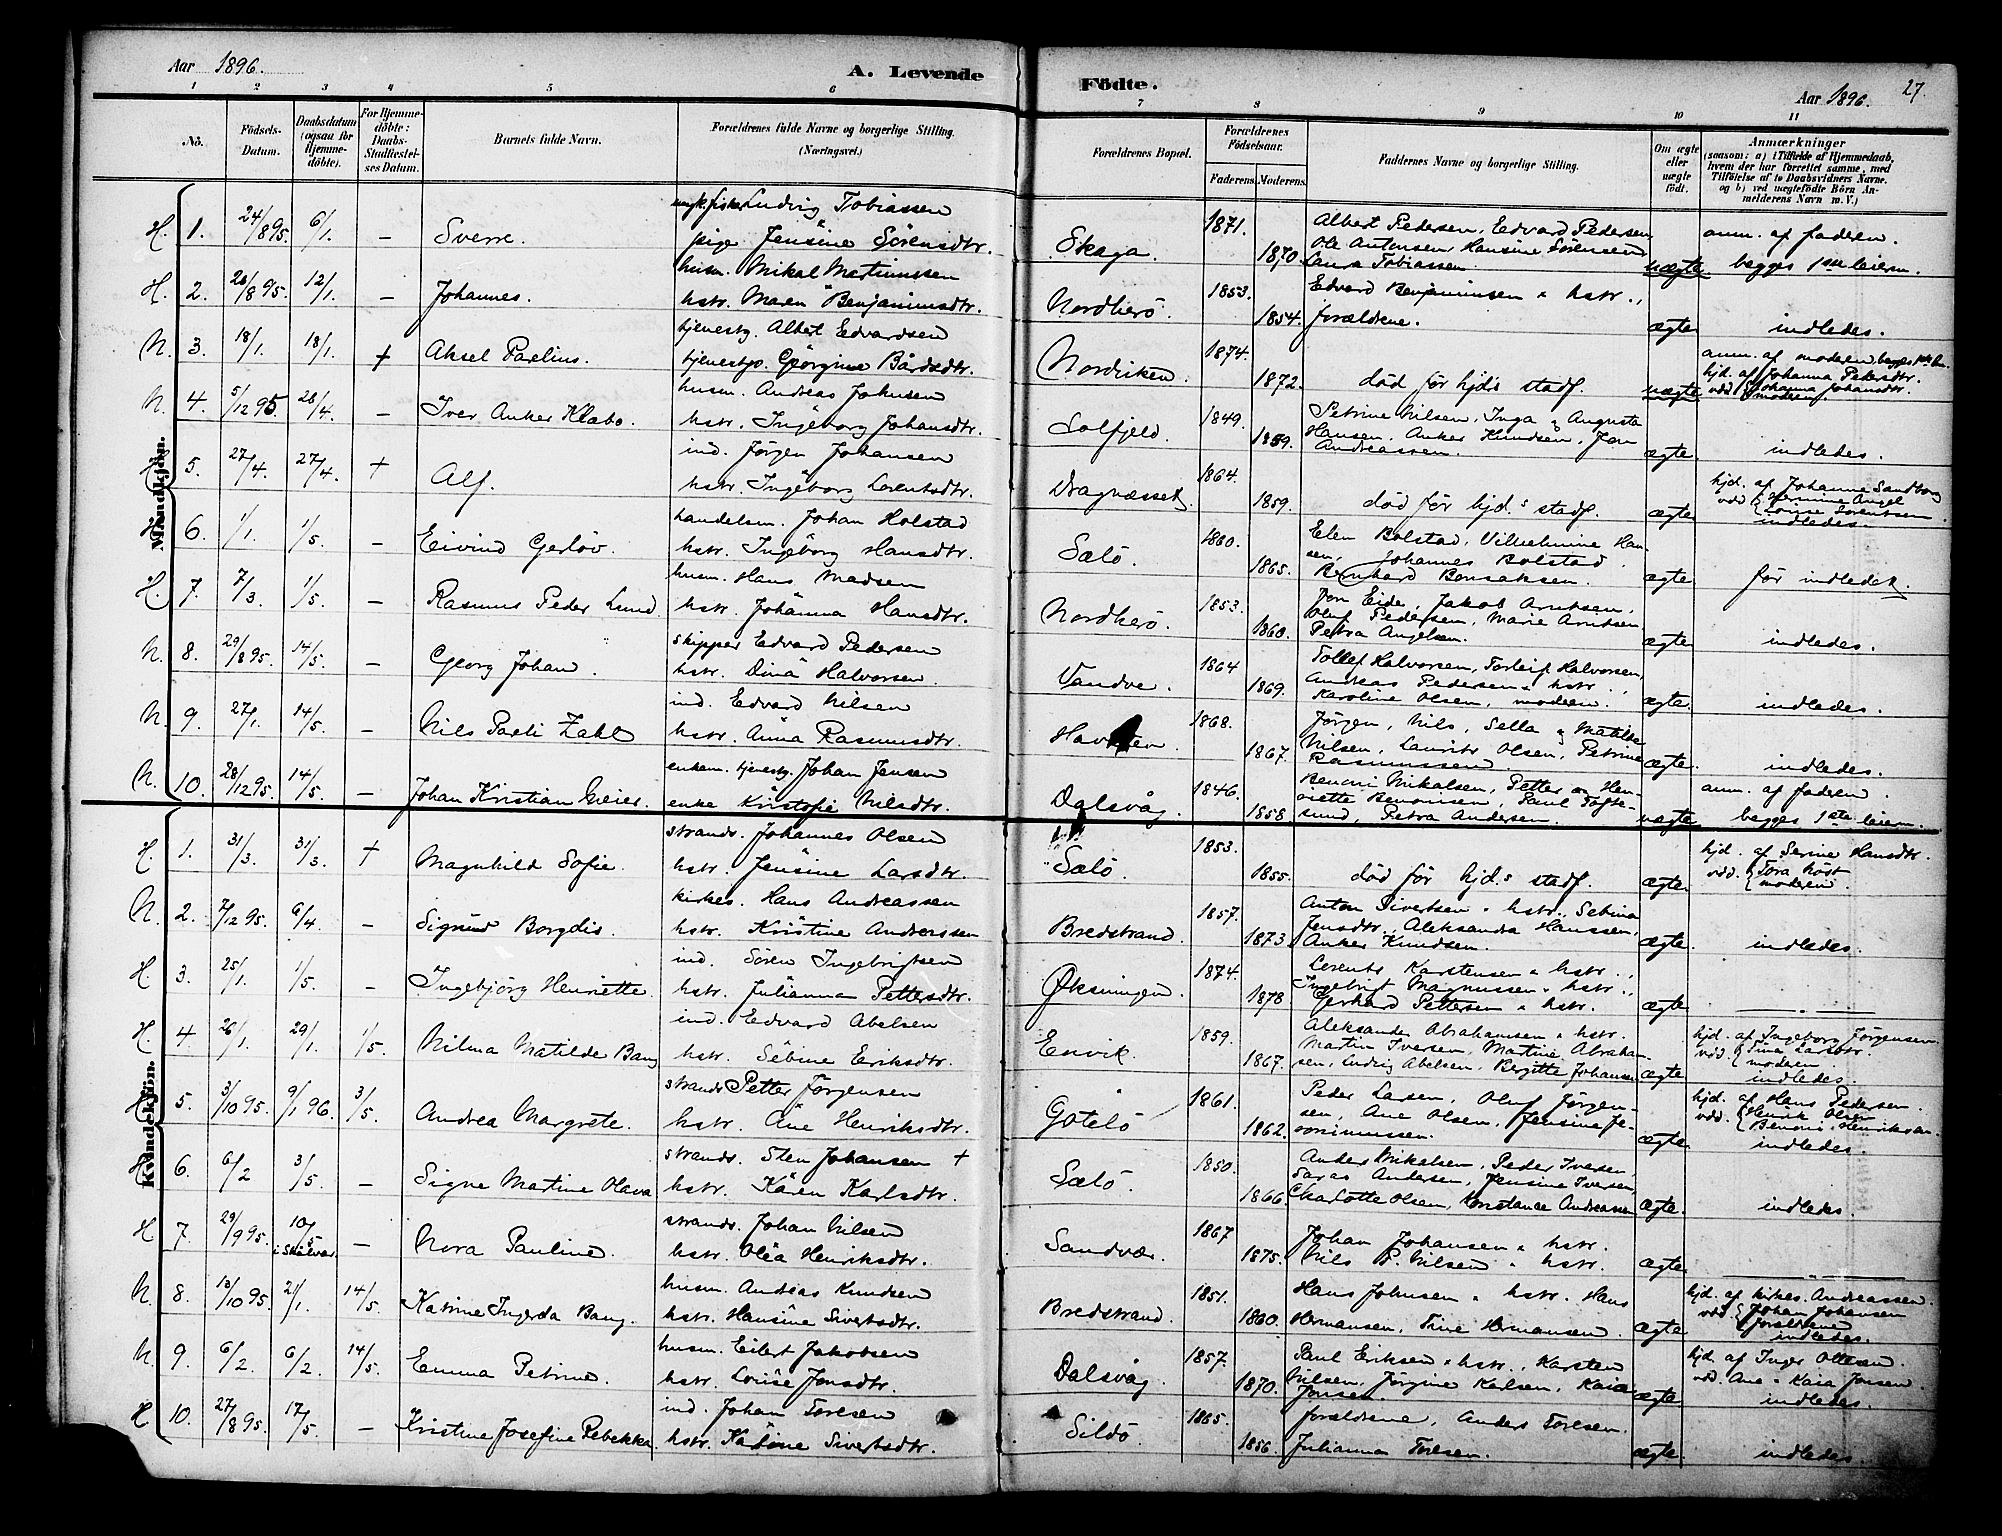 Aar 1896.
A. Levende
Födte.
Aar 1896.
27.
1 2 3 4 5 6 7 8 9 10 11
No.
Födsels-Datum.
Daabsdatum (ogsaa för Hjemmedöbte).
For Hjemmedöbte: Daabs-Stadfæstelses Datum.
Barnets fulde Navn.
Forældrenes fulde Navne og borgerlige Stilling. (Næringsvei.)
Forældrenes Bopæl.
Forældrenes Födselsaar.
Faderens. Moderens.
Faddernes Navne og borgerlige Stilling.
Om ægte eller uægte födt.
Anmærkninger
(saasom: a) i Tilfælde af Hjemmedaab, hvem der har forrettet samme, med Tilföielse af to Daabsvidners Navne. og b) ved uægtefödte Börn Anmelderens Navn m. V.)
Mandkjön.
H. 1. 24/8 95. 6/1. – Sverre. ungk. fisker Ludvig Tobiassen
pige Jensine Sörensdtr. Skaga. 1871. 1870. Albert Pedersen, Edvard Pedersen,
Ole Antonsen, Hansine Sörensen
Laura Tobiassen. uægte anm. af faderen.
begges 1ste leierm.
H. 2. 26/8 95. 12/1. – Johannes. husm. Mikal Martinussen
hstr. Maren Benjaminsdtr. Nordherö. 1853. 1854. Edvard Benjaminsen & hstr.,
forældrene. ægte indledes.
N. 3. 18/1. 18/1. + Aksel Parelius. tjenestg. Albert Edvardsen
tjenestp. Georgine Bårdsdtr. Nordviken. 1874. 1872. död för hjd's stadf. uægte anm. af moderen begges 1ste lm.
hjd. af Johanna Petersdtr.
vdd. Johanna Johansdtr.
moderen
N. 4. 5/12 95 26/4. – Iver Anker Klæbo. husm. Andreas Johnsen
hstr. Ingeborg Johansdtr. Solfjeld. 1849. 1859. Petrine Nilsen, Inga & Augusta
Hansen, Anker Knudsen, Jon
Andreassen. ægte indledes.
H. 5. 27/4. 27/4. + Alf. ind. Jörgen Johansen
hstr. Ingeborg Lorentsdtr. Dragnæsset. 1864. 1859. död för hjd.s stadf. ægte hjd. af Johanne Sandberg
vdd. Hermine Angel
Lovise Lorentsen
indledes.
H. 6. 1/1. 1/5. – Eivind Gerlöv. handelsm. Johan Holstad
hstr. Ingeborg Hansdtr. Sælö. 1860. 1865. Elen Bolstad, Vilhelmine Han-
sen, Johannes Bolstad,
Bernhard Bensaksen. ægte för indledet.
H. 7. 7/3. 1/5. – Rasmus Peder Lund husm. Hans Madsen
hstr. Johanna Hansdtr. Nordherö. 1853. 1860. Jon Eide, Jakob Arntsen,
Oluf Pedersen, Marie Arntsen
Petra Angelsen. ægte indledes.
N. 8. 29/8 95. 14/5. – Georg Johan. skipper Edvard Pedersen
hstr. Dina Halvorsen. Vandve. 1864 1869. Tollef Halvorsen, Torleif Halvorsen,
Andreas Pedersen & hstr.,
Karoline Olsen, moderen. ægte. indledes.
N. 9. 27/1. 14/5. – Nils Parli Zahl ind. Edvard Nilsen
hstr. Anna Rasmusdtr. 1868. 1867. Jörgen, Nils, Sella & Matilde
Nilsen, Laurits Olsen, Petrine
Rasmussen. ægte. indledes.
N. 10. 28/12 95. 14/5. – Johan Kristian Meier. enkem. tjenestg. Johan Jensen
enke Kristofa Nilsdtr. Dalsvåg. 1846. 1858. Benoni Mikalsen, Petter & Hen-
riette Benonisen, Paul Toft-
sund, Petra Andersen. uægte anm. af faderen.
begges 1ste leierm.
Kvindekjön.
H. 1. 31/3. 31/3. + Magnhild Sofie. strands. Johannes Olsen
hstr. Jensine Larsdtr. Sælö. 1853. 1855. död för hjd.s stadf. ægte hjd. af Serine Hansdtr.
vdd. Tora Höst
moderen.
N. 2. 7/12 95. 6/4. – Sigrund Borgdis. kirkes. Hans Andreassen
hstr. Kristine Andreassen Bredstrand. 1857. 1873. Anton Sivertsen & hstr., Sebina
Jensdtr., Aleksandra Hanssen,
Anker Knudsen. ægte. indledes.
H. 3. 25/1. 1/5. – Ingebjörg Henriette. ind. Sören Ingebrigtsen
hstr. Julianna Pettersdtr. Øksningen. 1874. 1878 Lorents Karstensen & hstr.,
Ingebrigt Magnussen & hstr.,
Gerhard Pettersen & hstr. ægte — „ —
H. 4. 26/1. 29/1. 1/5. Nilma Matilde Bang ind. Edvard Abelsen
hstr. Sebine Eriksdtr. Envik. 1859. 1867. Aleksander Abrahamsen & hstr.
Martin Iversen, Martine Abraham-
sen, Ludvig Abelsen, Bergitte Johansen ægte hjd. af Ingeborg Jörgensen.
vdd. Tina Larsdtr.
moderen
indledes.
H. 5. 3/10 95. 9/1 96. 3/5. Andrea Margrete. strands. Petter Jörgensen
hstr. Ane Henriksdtr. Götelö 1861. 1862. Peder Larsen, Oluf Jörgen-
sen, Ane Olsen, Jensine Je-
ronimussen. ægte hjd. af Hans Pedersen.
vdd. Henrik Olsen
Benoni Henriksen.
indledes.
H. 6. 6/2 3/5. – Signe Martine Olava strands. Sten Johansen +
hstr. Karen Karlsdtr. Sælö. 1850. 1866. Anders Mikalsen, Peder Iversen
Andersen, Jensine Iversen,
Charlotte Olsen, Konstanse Andreassen ægte. indledes.
H 7. 29/9 95. 10/5 i Skålvær. – Nora Pauline. strands. Johan Nilsen
hstr. Olea Henriksdtr. Sandvær. 1867 1875. Johan Johansen & hstr.
Nils P. Nilsen & hstr. ægte — „ —
N. 8. 13/10 95. 2/1. 14/5. Katrine Ingerda Bang. husm. Andreas Knudsen
hstr. Hansine Sivertsdtr. Bredstrand. 1851. 1860. Hans Johnsen & hstr. Hans
Hermansen, Trine Hermansen. ægte. hjd. af kirkes. Andreassen.
vdd. Johan Johansen
forældrene
indledes.
N. 9. 6/2. 6/2. 14/5. Emma Petrine. husm. Eilert Jakobsen
hstr. Lovise Jonsdtr. Dalsvåg. 1857. 1870. Paul Eriksen & hstr., Karsten
Nilsen, Jörgine Karlsen, Kaia
Jonsen. ægte hjd. af Inger Ottesen.
vdd. Ane & Kaia Jonsen.
indledes.
H 10. 27/8 95. 17/5. – Kristine Josefine Rebekka. ind. Johan Toresen
hstr. Katrine Sivertsdtr. Sildö. 1865. 1856. forældrene, Anders Toresen.
Julianna Toresen. ægte. indledes.